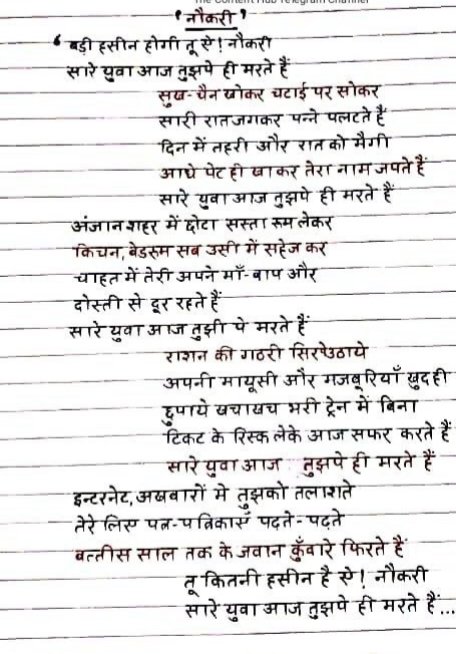 The Content Hub Telegram Channel
'नौकरी'
"बड़ी हसीन होगी तू ऐ! नौकरी
सारे युवा आज तुझपे ही मरते हैं
सुख-चैन खोकर चटाई पर सोकर
सारी रात जगकर पन्ने पलटते हैं
दिन में तहरी और रात को मैगी
आधे पेट ही खाकर तेरा नाम जपते हैं
सारे युवा आज तुझपे ही मरते हैं
अंजान शहर में छोटा सस्ता रूम लेकर
किचन, बेडरूम सब उसी में सहेज कर
चाहत में तेरी अपने माँ-बाप और
दोस्ती से दूर रहते हैं
सारे युवा आज तुझी पे मरते हैं
राशन की गठरी सिरपे उठाये
अपनी मायूसी और मजबूरियाँ खुद ही
छुपाये खचाखच भरी ट्रेन में बिना
टिकट के रिस्क लेके आज सफर करते हैं
सारे युवा आज तुझपे ही मरते हैं
इन्टरनेट, अखबारों मे तुझको तलाशते
तेरे लिए पत्र-पत्रिकाएँ पढ़ते-पढ़ते
बत्तीस साल तक के जवान कुँवारे फिरते हैं
तू कितनी हसीन है ऐ! नौकरी
सारे युवा आज तुझपे ही मरते हैं...